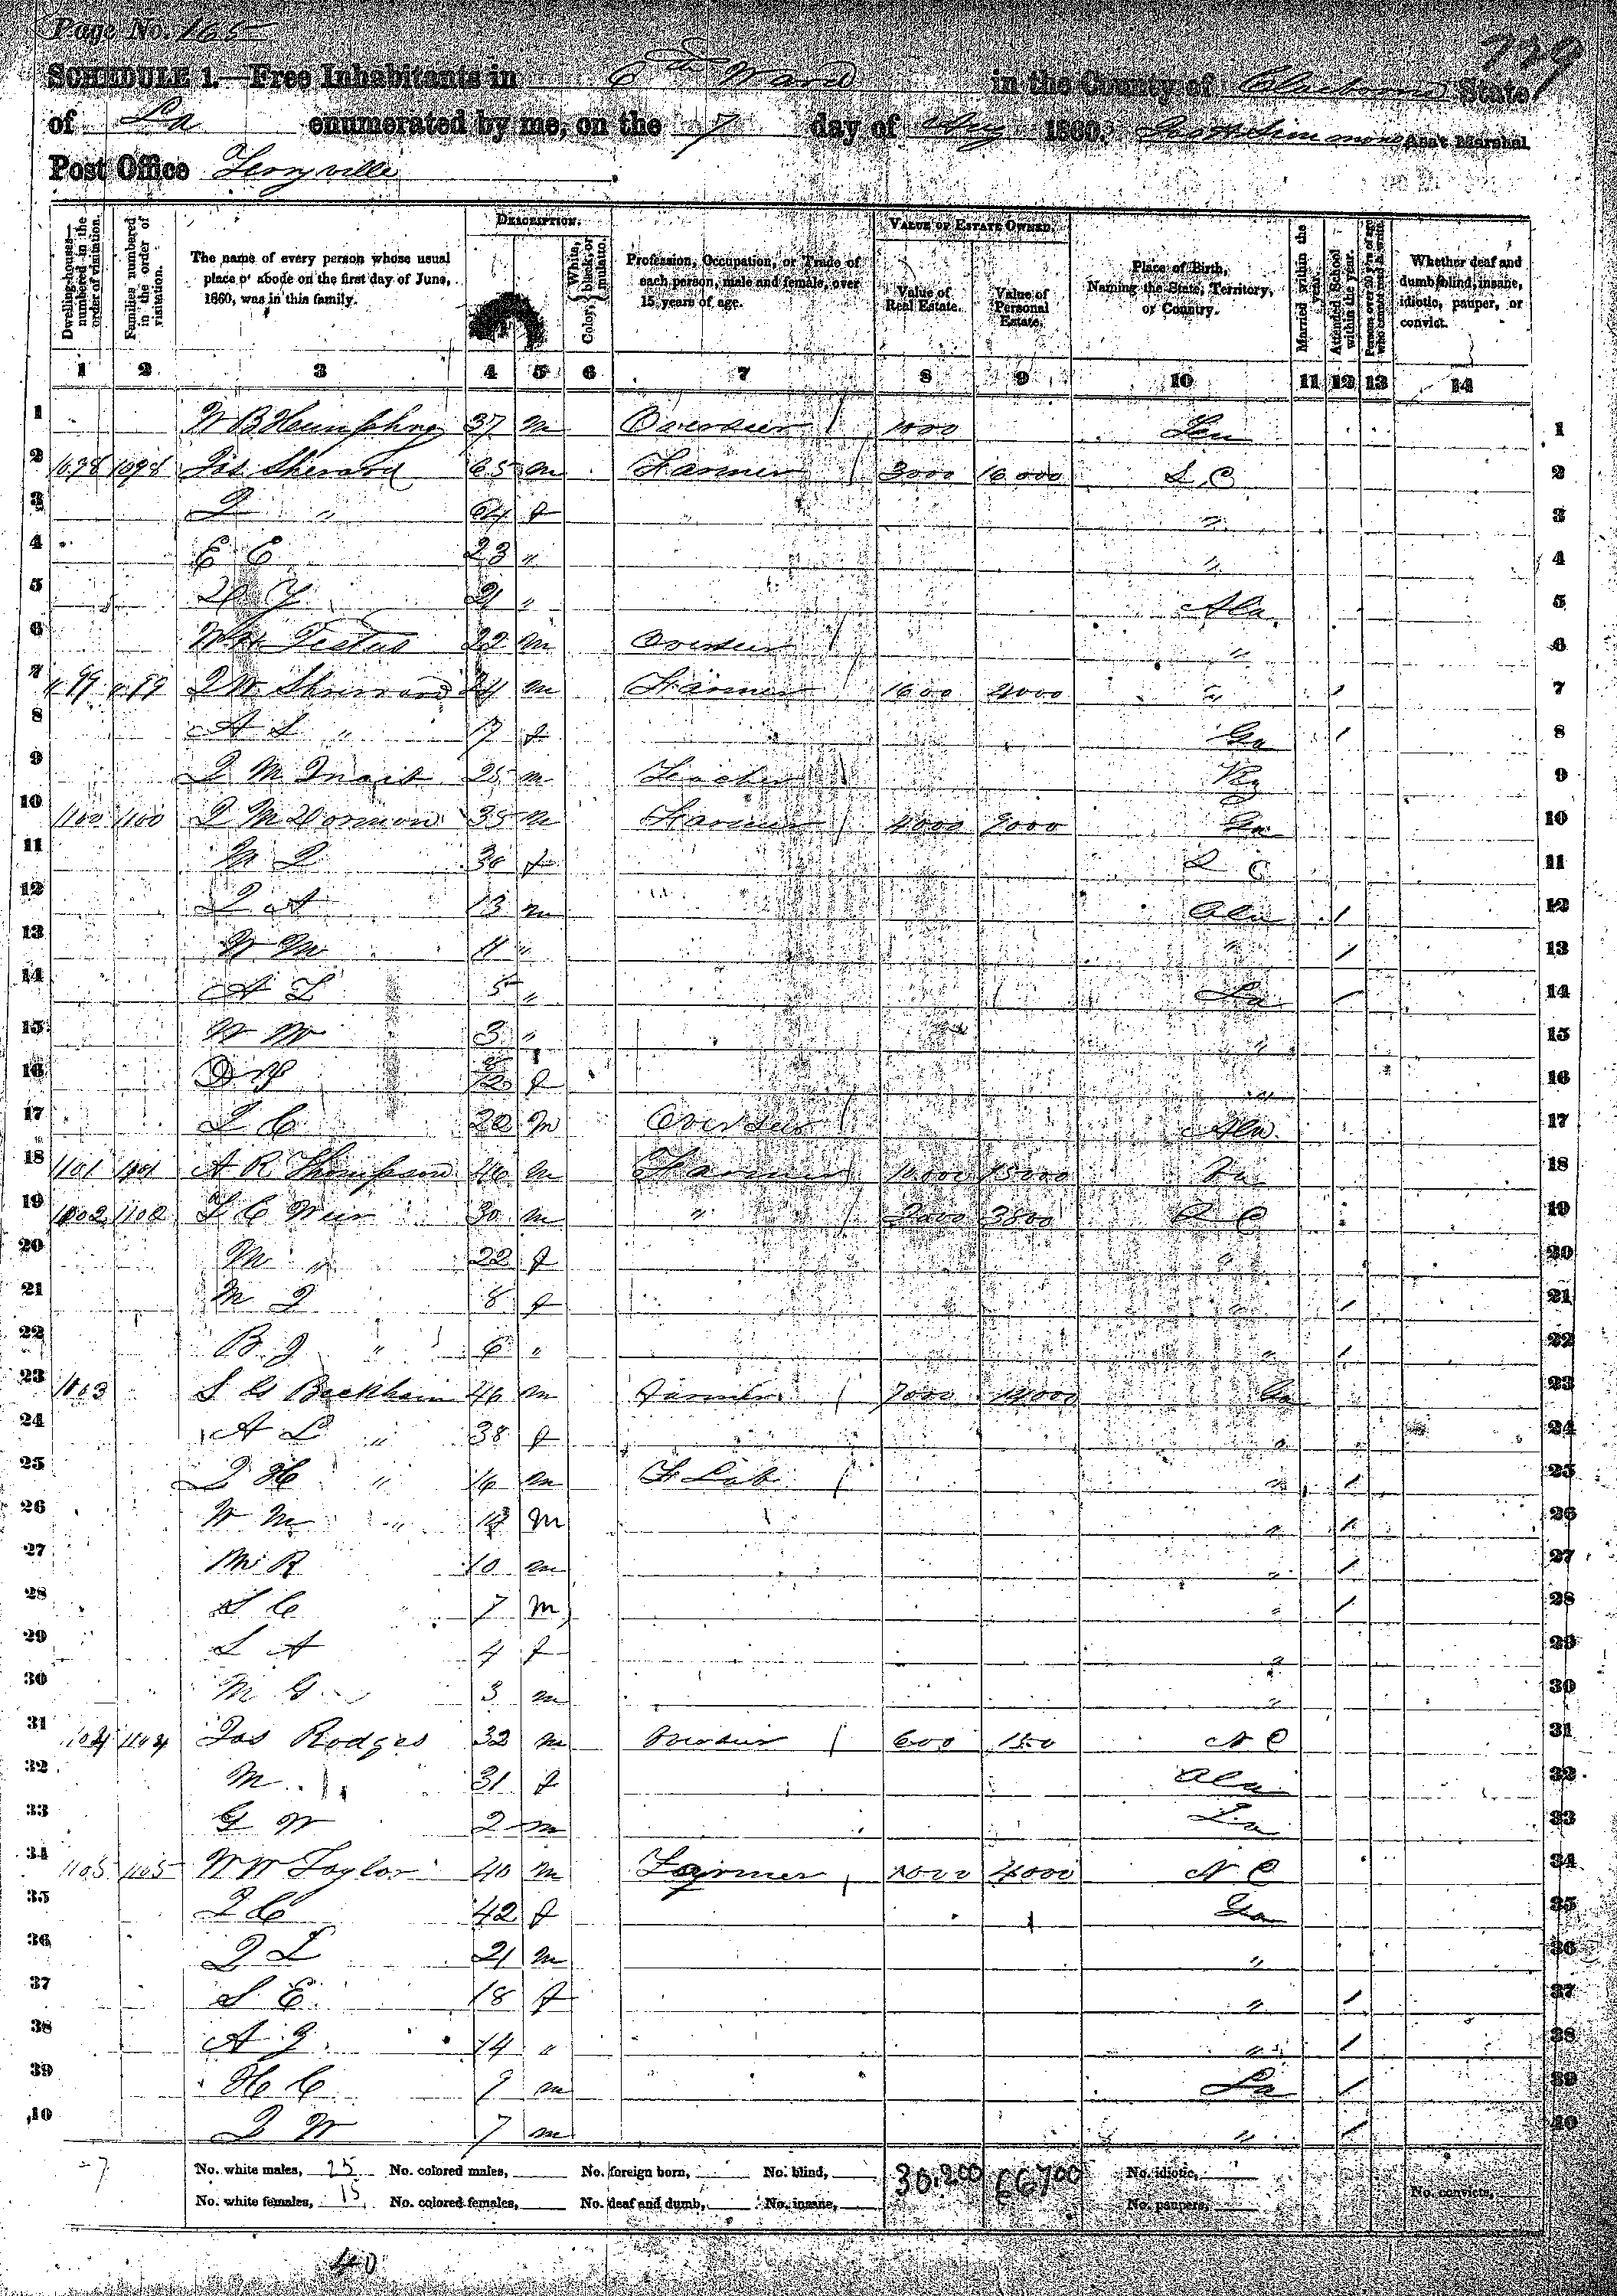 Page No. 165
739
SCHEDULE 1.—Free Inhabitants in 6th Ward in the County of Claiborne State
of La enumerated by me, on the 7 day of Aug 1860. Ass't Marshal.
Post Office
Dwelling-houses—numbered in the order of visitation.
Families numbered in the order of visitation.
The name of every person whose usual place of abode on the first day of June, 1860, was in this family.
DESCRIPTION.
Color, { White, black, or mulatto.
Profession, Occupation, or Trade of each person, male and female, over 15 years of age.
VALUE OF ESTATE OWNED.
Value of Real Estate.
Value of Personal Estate.
Place of Birth, Naming the State, Territory, or Country.
Married within the year.
Attended School within the year.
Persons over 20 y'rs of age who cannot read & write.
Whether deaf and dumb, blind, insane, idiotic, pauper, or convict.
1 2 3 4 5 6 7 8 9 10 11 12 13 14
1 W B Humphrey 37 m Overseer 1 1000 Ten 1
2 1098 1098 Jas Sherard 65 m Farmer 1 3000 16000 S C 2
3 J " 64 f " 3
4 E E 23 " " 4
5 21 " Ala 5
6 22 m Overseer 1 " 6
7 1099 1099 J W Sherrard 24 m Farmer 1 1600 4000 " / 7
8 A S " 17 f Ga / 8
9 J M 25 m Teacher 1 Ky 9
10 1100 1100 J M Dorman 35 m Farmer 1 4000 9000 Ga 10
11 M J 30 f S C 11
12 J A 13 m Ala / 12
13 W M 11 " " / 13
14 A L 5 " La / 14
15 W W 3 " " 15
16 8/12 f " 16
17 J C 22 m Overseer 1 Ala 17
18 1101 1101 A R Thompson 46 m Farmer 1 10000 15000 18
19 1102 1102 T C Weir 30 m " 1 2000 3800 S C 19
20 M " 22 f " 20
21 M J 8 f " / 21
22 B J " 6 " " / 22
23 1103 S G Beckham 46 m Farmer 1 7000 14000 Ga 23
24 A L " 38 f " 24
25 J H " 16 m F Lab 1 " / 25
26 W M " 13 m " / 26
27 M R 10 m " / 27
28 S C 7 m " / 28
29 S A 4 f " 29
30 M G 3 m " 30
31 1104 1104 Jas Rodges 32 m Overseer 1 600 150 N C 31
32 M " 31 f Ala 32
33 G W 2 m La 33
34 1105 1105 W W Taylor 40 m Farmer 1 1000 4000 N C 34
35 J C 42 f Ga 35
36 J L 21 m " 36
37 S E 18 f " / 37
38 A J 14 " " / 38
39 H C 9 m La / 39
40 J W 7 m " / 40
No. white males, 25 No. colored males, No. foreign born, No. blind, 30,200 66700 No. idiotic,
No. white females, 15 No. colored females, No. deaf and dumb, No. insane, No. paupers, No. convicts,
40